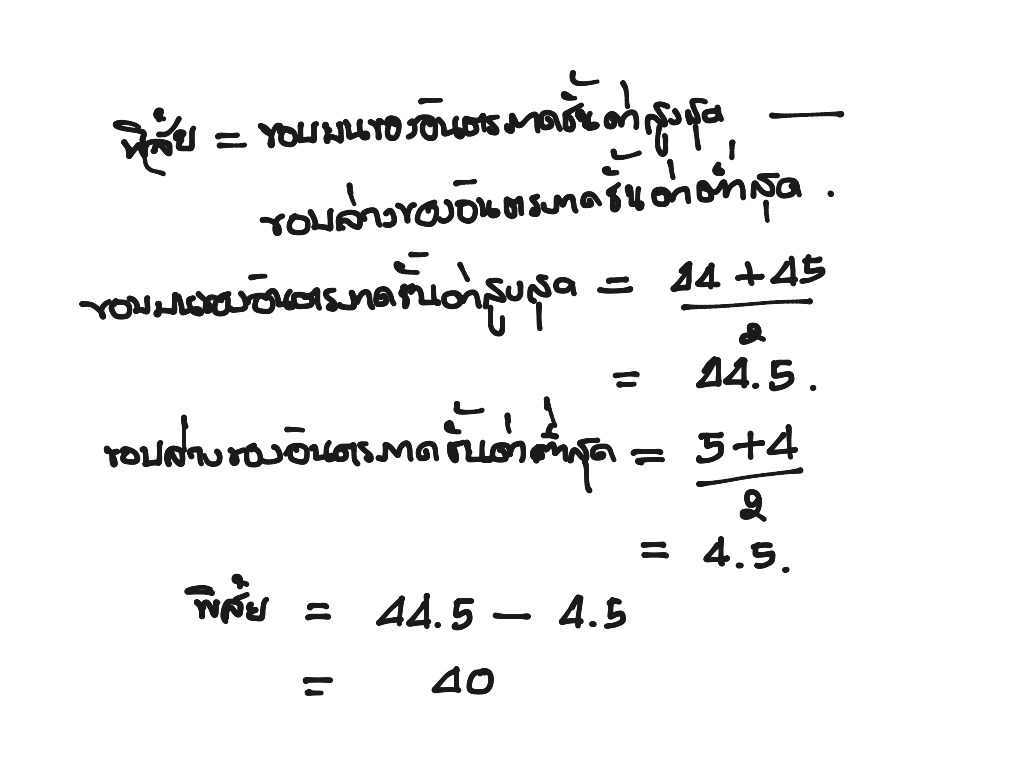 พิสัย = ขอบบนของอันตรภาคชั้นค่าสูงสุด —
ขอบล่างของอันตรภาคชั้นค่าต่ำสุด .
ขอบบนของอันตรภาคชั้นค่าสูงสุด = 44 + 45
2
= 44.5 .
ขอบล่างของอันตรภาคชั้นค่าต่ำสุด = 5+4
2
= 4.5.
พิสัย = 44.5 — 4.5
= 40